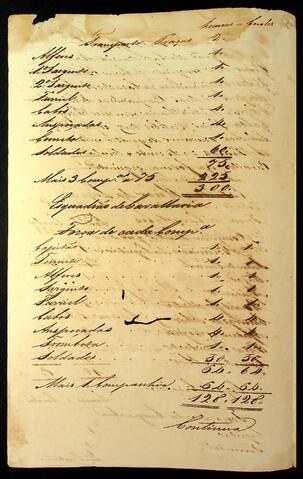 homens — cavalos
Transporte Praças 2
Alferes 1
1º Sargento 1
2º Sargento 1
Furriel 1
Cabos 4
Anspeçadas 4
Corneta 1
Soldados 60
75
Mais 3 Comp.as a 75 225
300
Esquadrão de Cavallaria
Força de cada Comp.a
Capitão 1 1
Tenente 1 1
Alferes 1 1
Sargento 1 1
Furriel 1 1
Cabos 4 4
Anspeçadas 4 4
Trombeta 1 1
Soldados 50 50
64 64
Mais 1 Companhia 64 64
128 128
Continua